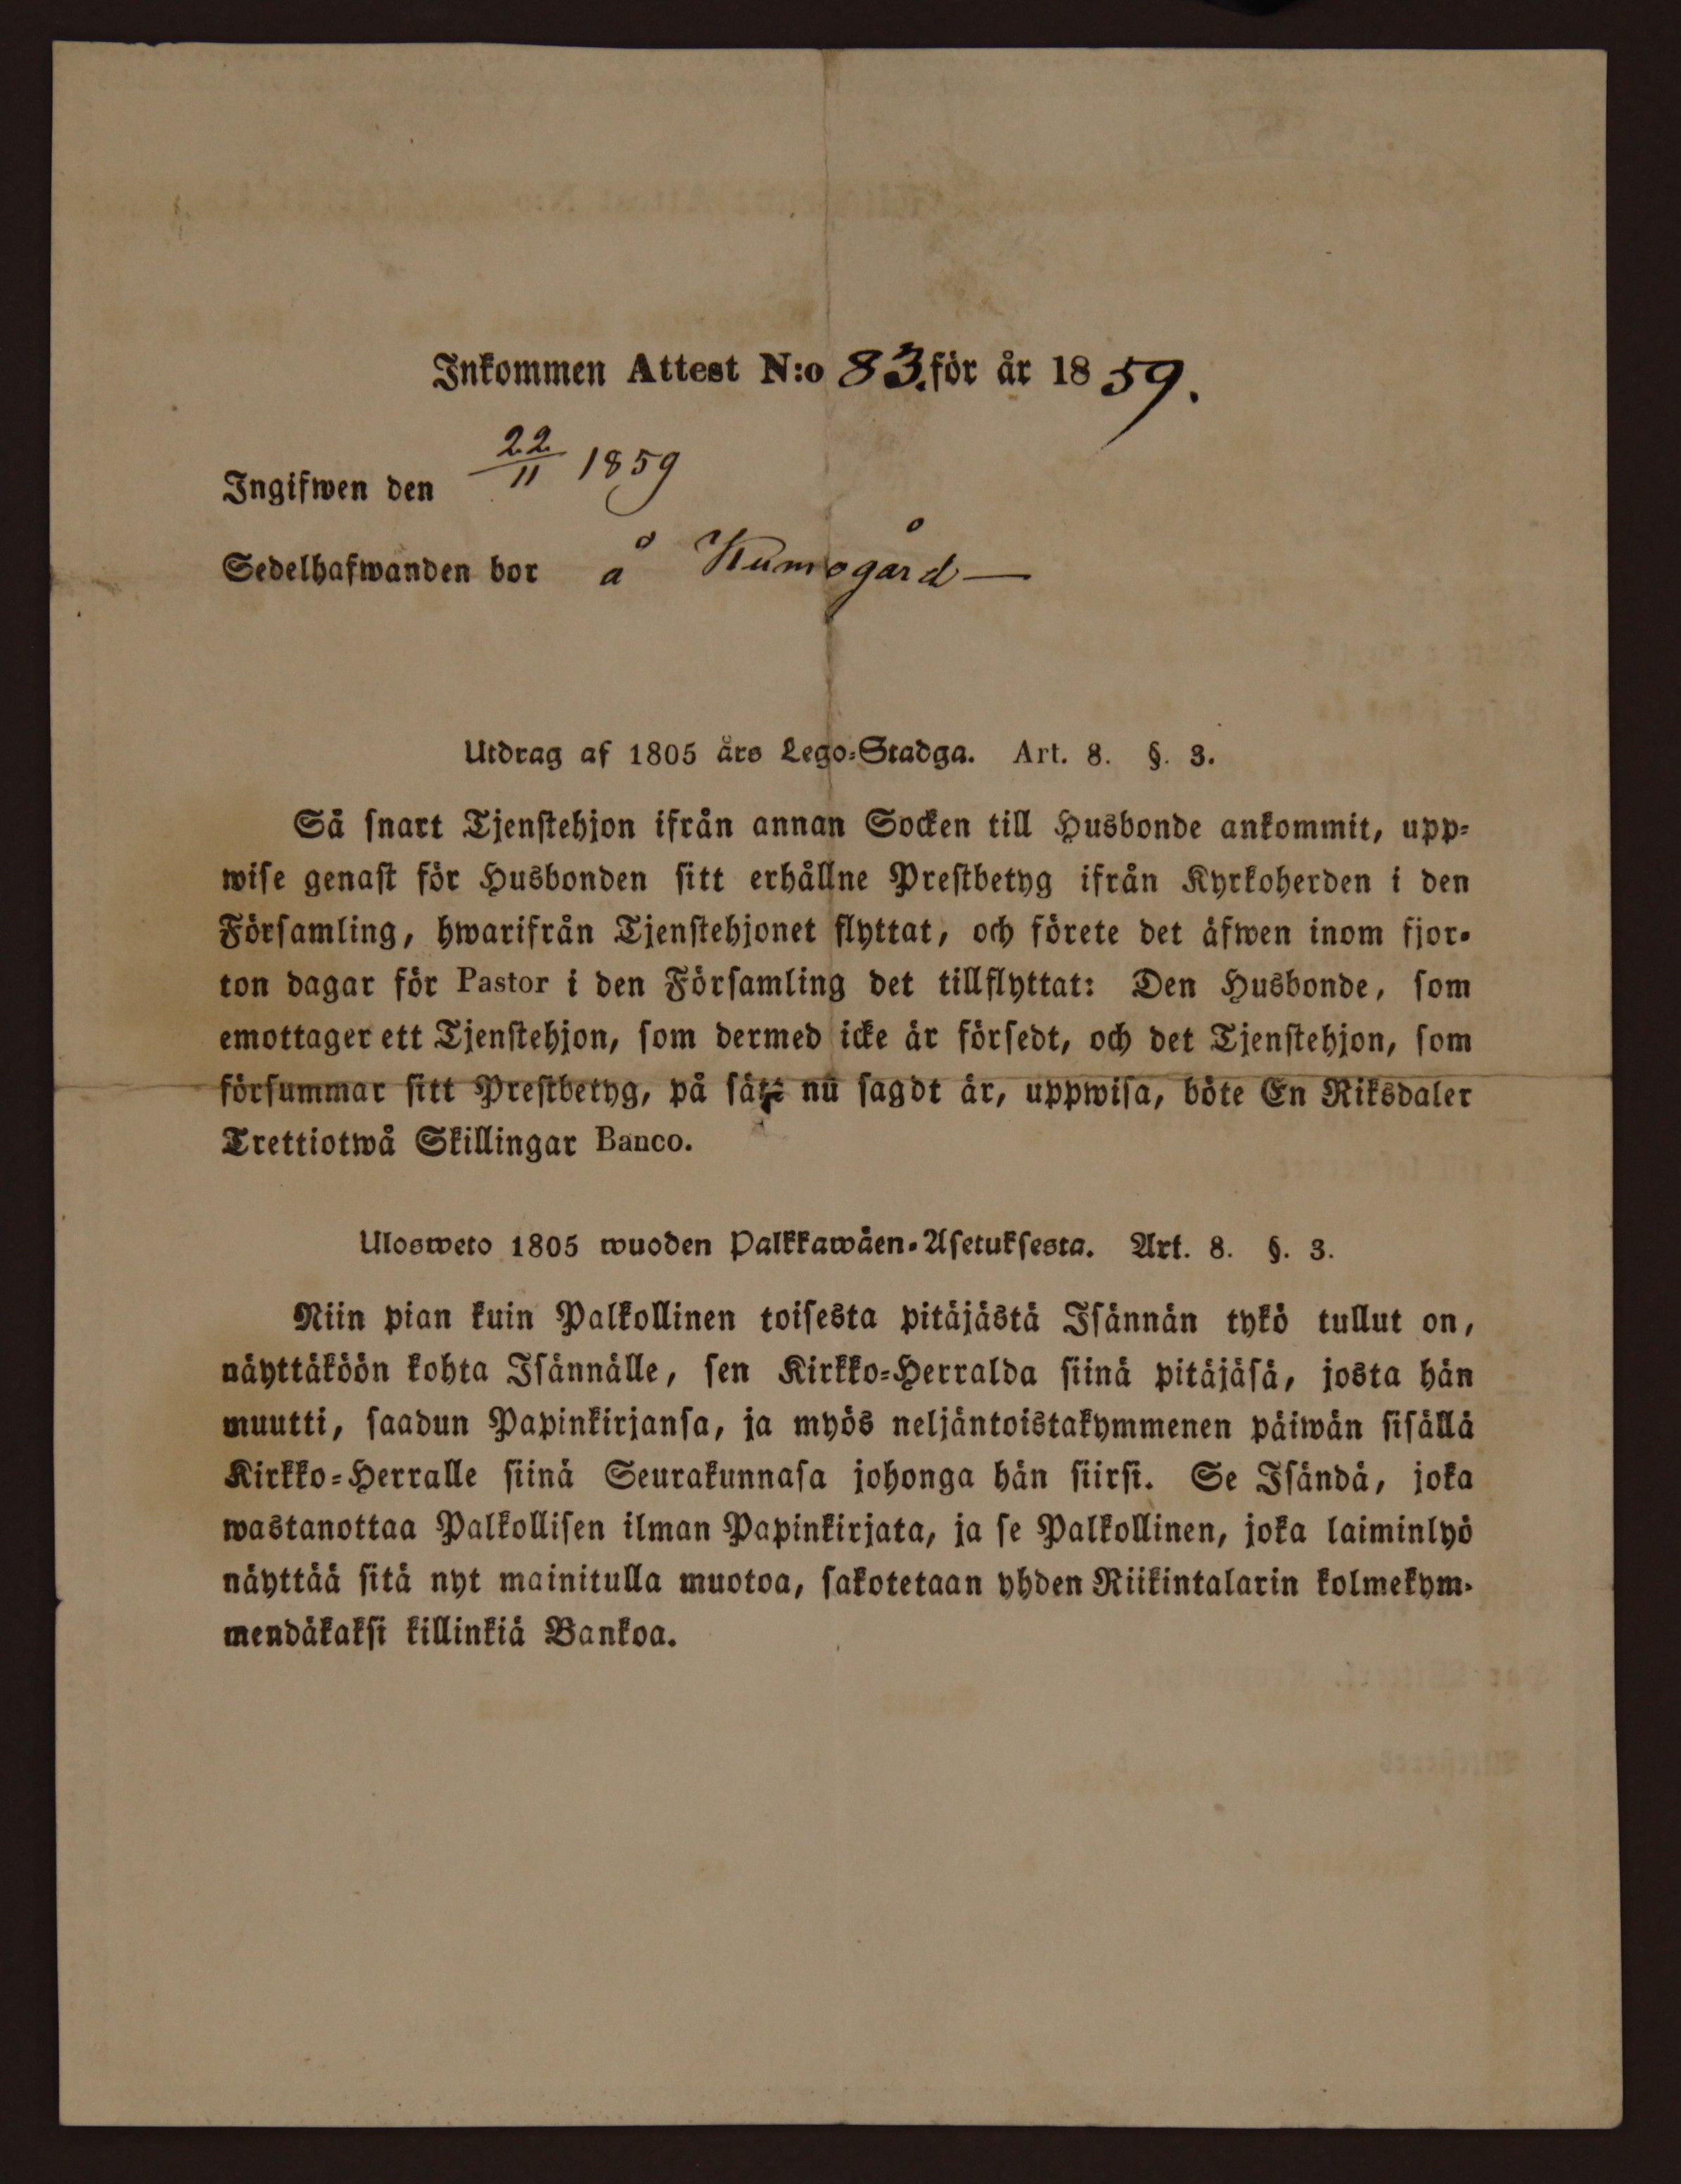 Inkommen Attest N:o 83. för år 1859.
Ingifwen den 22/11 1859
Sedelhafwanden bor å Kumogård —
Utdrag af 1805 års Lego-Stadga. Art. 8. §. 3.
Så snart Tjenstehjon ifrån annan Socken till Husbonde ankommit, upp-
wise genast för Husbonden sitt erhållne Prestbetyg ifrån Kyrkoherden i den
Församling, hwarifrån Tjenstehjonet flyttat, och förete det äfwen inom fjor-
ton dagar för Pastor i den Församling det tillflyttat: Den Husbonde, som
emottager ett Tjenstehjon, som dermed icke är försedt, och det Tjenstehjon, som
försummar sitt Prestbetyg, på sätt nu sagdt är, uppwisa, böte En Riksdaler
Trettiotwå Skillingar Banco.
Ulosweto 1805 wuoden Palkkawäen-Asetuksesta. Art. 8. §. 3.
Niin pian kuin Palkollinen toisesta pitäjästä Isännän tykö tullut on,
näyttäköön kohta Isännälle, sen Kirkko-Herralda siinä pitäjäsä, josta hän
muutti, saadun Papinkirjansa, ja myös neljäntoistakymmenen päiwän sisällä
Kirkko-Herralle siinä Seurakunnasa johonga hän siirsi. Se Isändä, joka
wastanottaa Palkollisen ilman Papinkirjata, ja se Palkollinen, joka laiminlyö
näyttää sitä nyt mainitulla muotoa, sakotetaan yhden Riikintalarin kolmekym-
mendäkaksi killinkiä Bankoa.